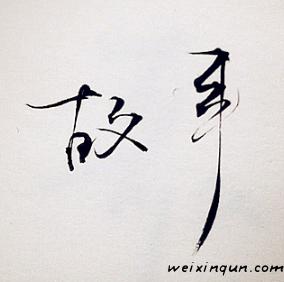 故事
weixinqun.com